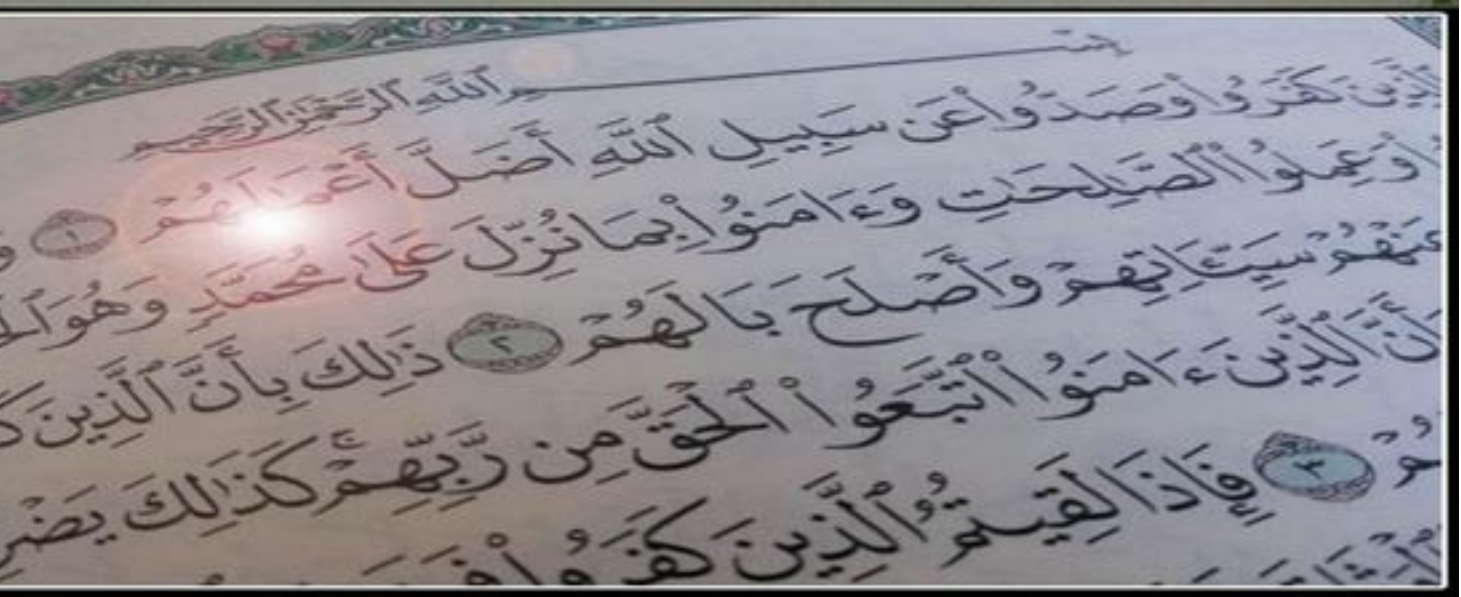 بِسْمِ ٱللَّهِ ٱلرَّحْمَٰنِ ٱلرَّحِيمِ
ٱلَّذِينَ كَفَرُوا۟ وَصَدُّوا۟ عَن سَبِيلِ ٱللَّهِ أَضَلَّ أَعْمَٰلَهُمْ ١
وَعَمِلُوا۟ ٱلصَّٰلِحَٰتِ وَءَامَنُوا۟ بِمَا نُزِّلَ عَلَىٰ مُحَمَّدٍ وَهُوَ
عَنْهُمْ سَيِّـَٔاتِهِمْ وَأَصْلَحَ بَالَهُمْ ٢ ذَٰلِكَ بِأَنَّ ٱلَّذِينَ
ٱلَّذِينَ ءَامَنُوا۟ ٱتَّبَعُوا۟ ٱلْحَقَّ مِن رَّبِّهِمْ كَذَٰلِكَ
٣ فَإِذَا لَقِيتُمُ ٱلَّذِينَ كَفَرُوا۟